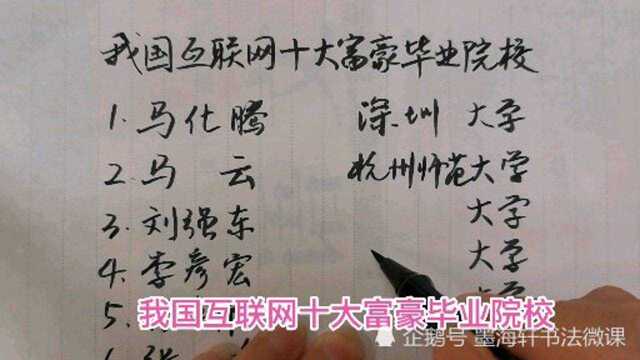 我国互联网十大富豪毕业院校
1.马化腾 深圳大学
2.马云 杭州师范大学
3.刘强东 大学
4.李彦宏 大学
5.
我国互联网十大富豪毕业院校
企鹅号 墨海轩书法微课